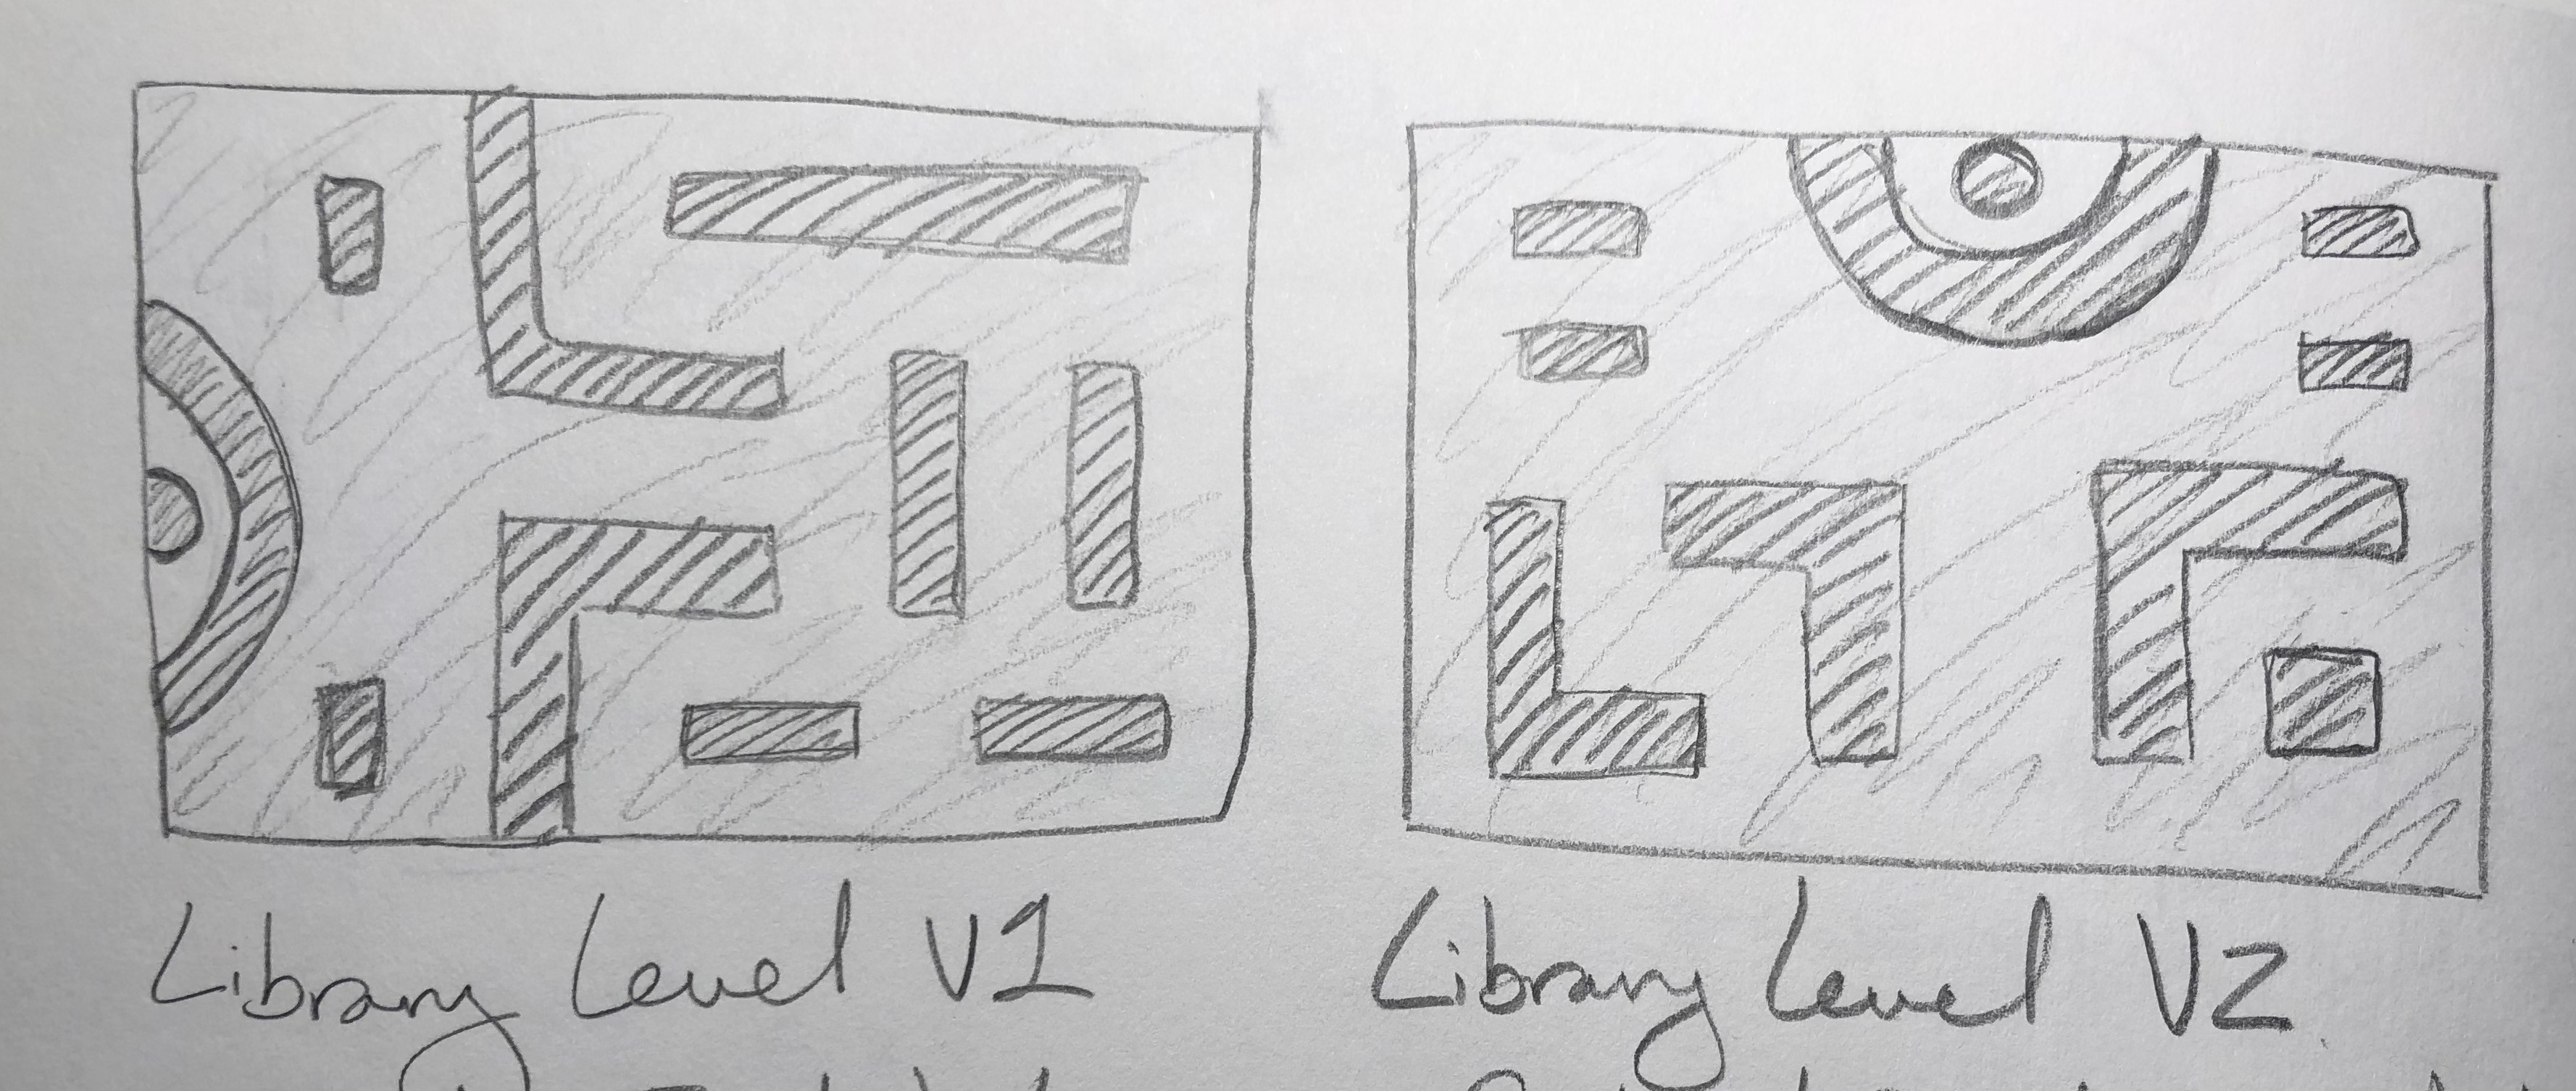 Library Level V1
Library Level V2